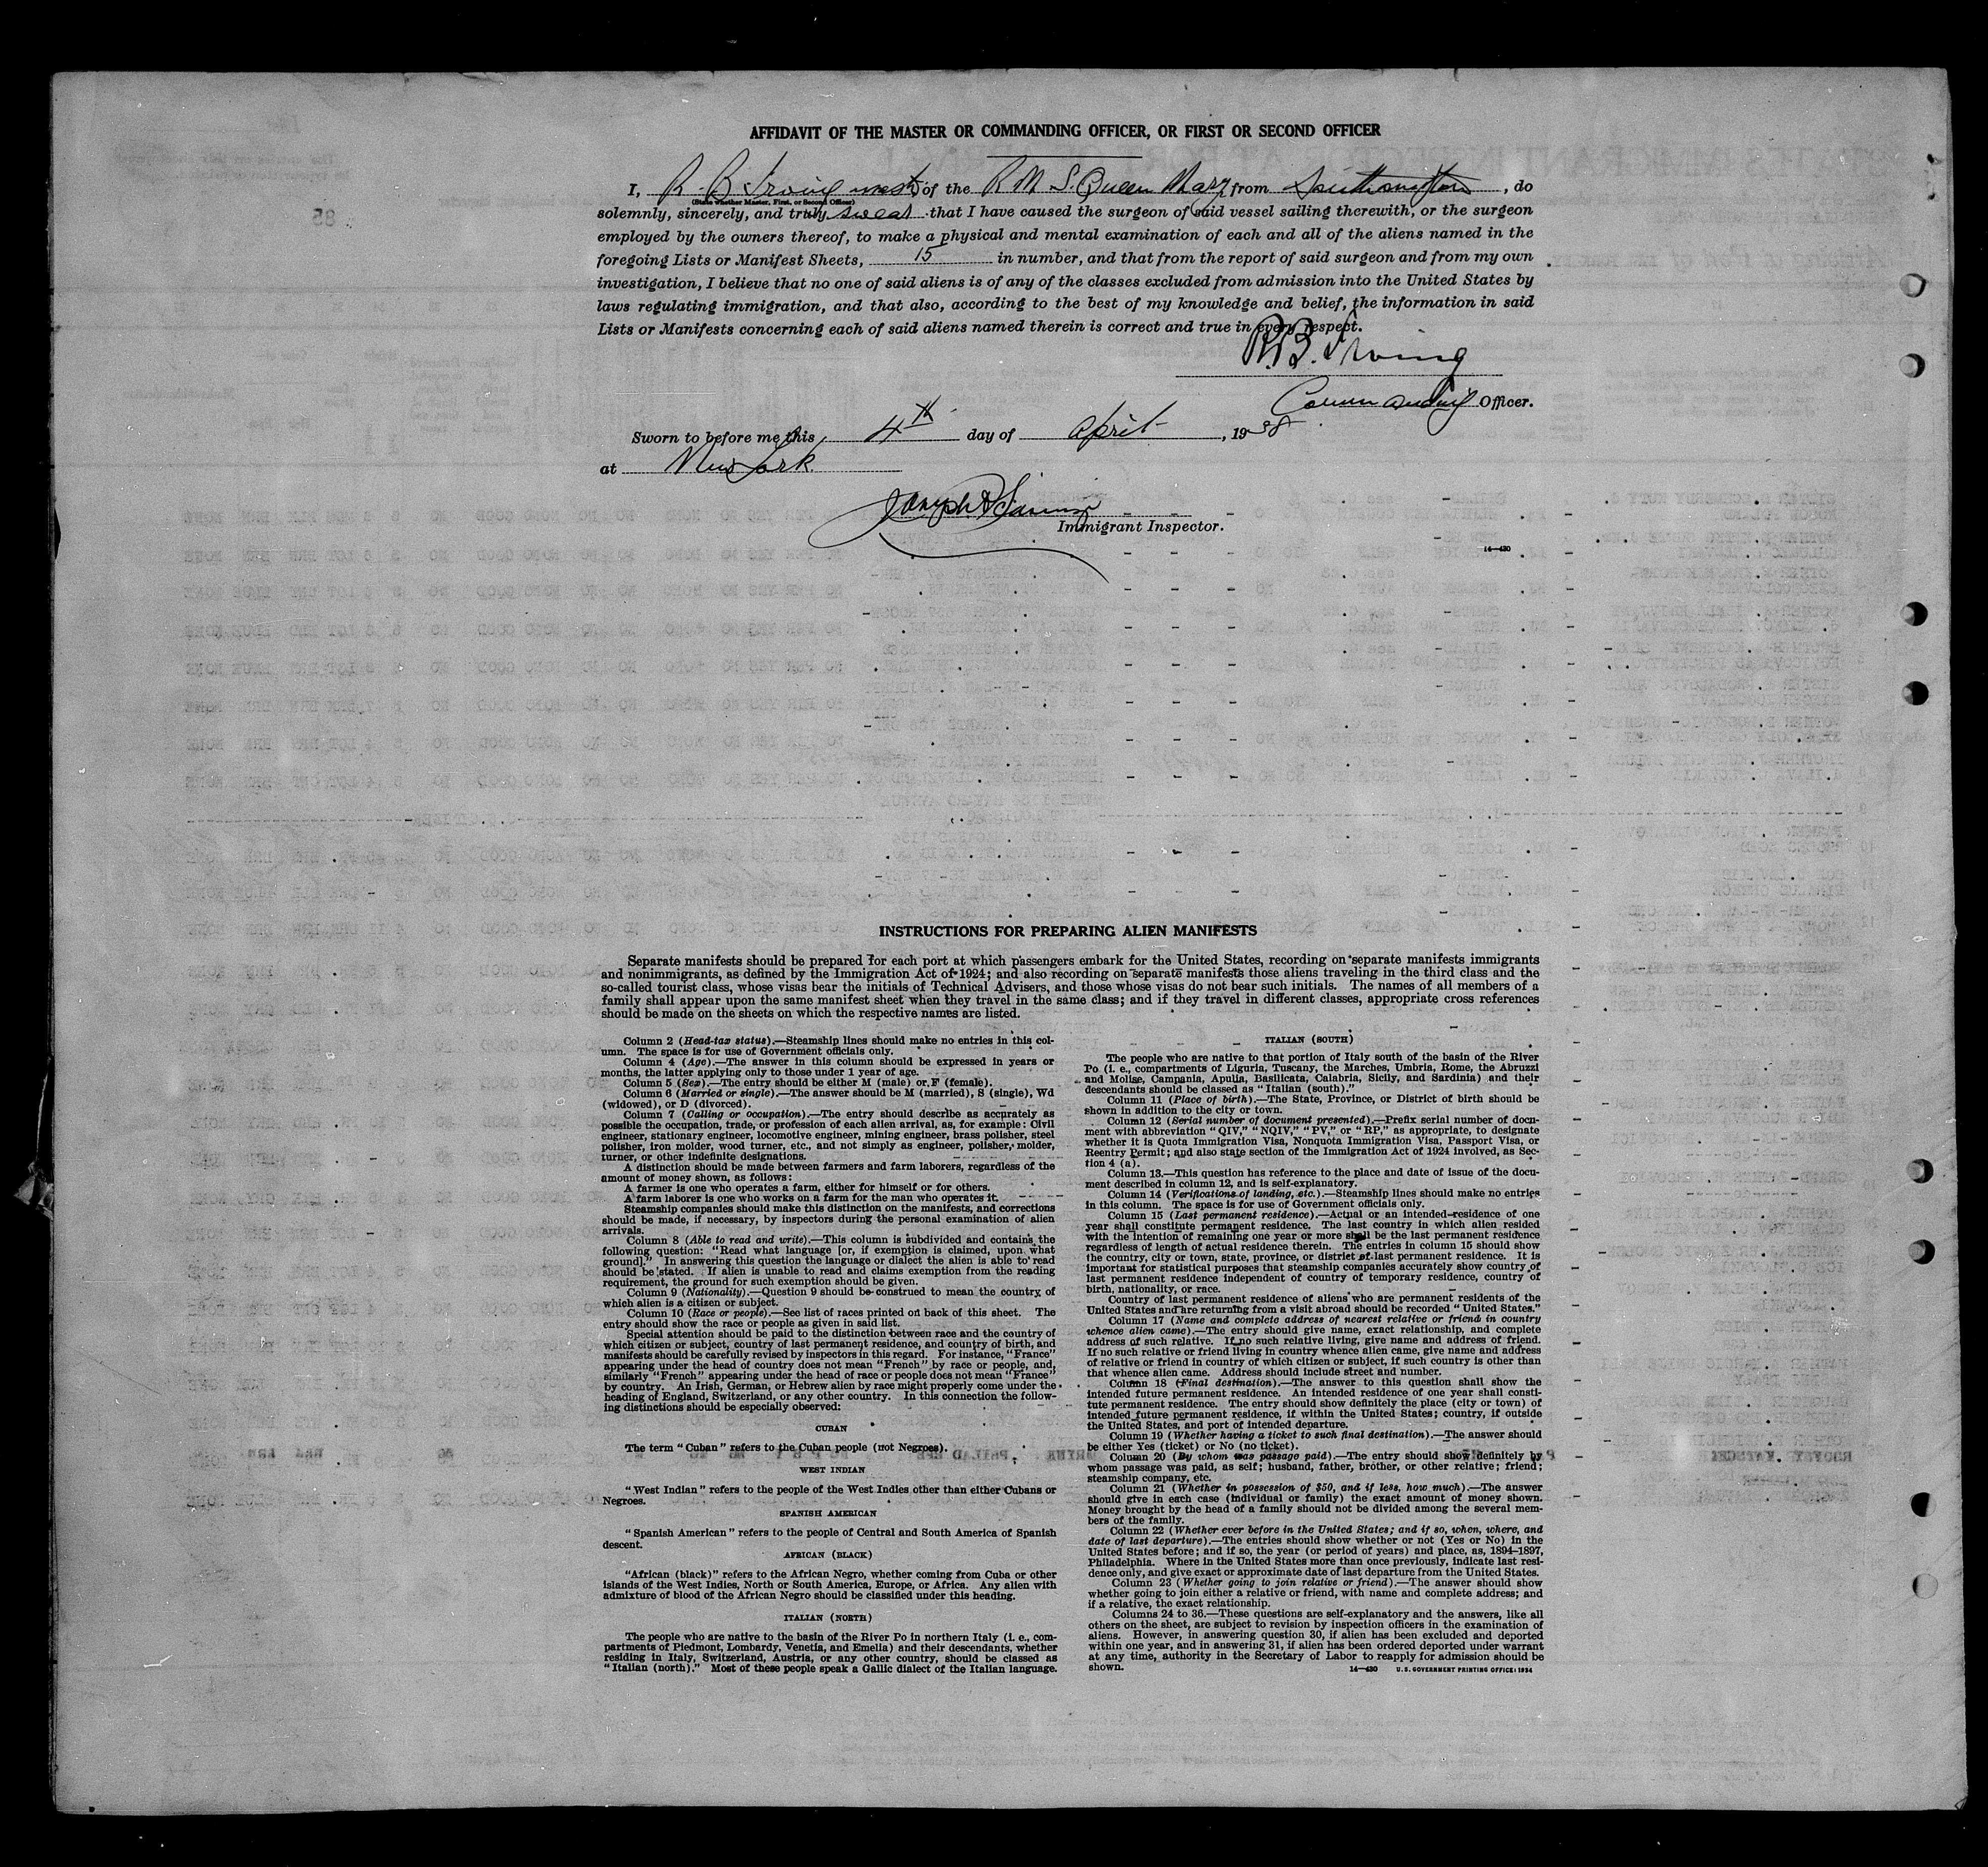 AFFIDAVIT OF THE MASTER OR COMMANDING OFFICER, OR FIRST OR SECOND OFFICER
I, R. B. Irving master of the R.M.S. Queen Mary from Southampton, do
(State whether Master, First, or Second Officer)
solemnly, sincerely, and truly swear that I have caused the surgeon of said vessel sailing therewith, or the surgeon
employed by the owners thereof, to make a physical and mental examination of each and all of the aliens named in the
foregoing Lists or Manifest Sheets, 15 in number, and that from the report of said surgeon and from my own
investigation, I believe that no one of said aliens is of any of the classes excluded from admission into the United States by
laws regulating immigration, and that also, according to the best of my knowledge and belief, the information in said
Lists or Manifests concerning each of said aliens named therein is correct and true in every respect.
R.B. Irving
Commanding Officer.
Sworn to before me this 4th day of April, 1938
at New York
Joseph
Immigrant Inspector.
14—430
INSTRUCTIONS FOR PREPARING ALIEN MANIFESTS
Separate manifests should be prepared for each port at which passengers embark for the United States, recording on separate manifests immigrants
and nonimmigrants, as defined by the Immigration Act of 1924; and also recording on separate manifests those aliens traveling in the third class and the
so-called tourist class, whose visas bear the initials of Technical Advisers, and those whose visas do not bear such initials. The names of all members of a
family shall appear upon the same manifest sheet when they travel in the same class; and if they travel in different classes, appropriate cross references
should be made on the sheets on which the respective names are listed.
Column 2 (Head-tax status).—Steamship lines should make no entries in this col-
umn. The space is for use of Government officials only.
Column 4 (Age).—The answer in this column should be expressed in years or
months, the latter applying only to those under 1 year of age.
Column 5 (Sex).—The entry should be either M (male) or F (female).
Column 6 (Married or single).—The answer should be M (married), S (single), Wd
(widowed), or D (divorced).
Column 7 (Calling or occupation).—The entry should describe as accurately as
possible the occupation, trade, or profession of each alien arrival, as, for example: Civil
engineer, stationary engineer, locomotive engineer, mining engineer, brass polisher, steel
polisher, iron molder, wood turner, etc., and not simply as engineer, polisher, molder,
turner, or other indefinite designations.
A distinction should be made between farmers and farm laborers, regardless of the
amount of money shown, as follows:
A farmer is one who operates a farm, either for himself or for others.
A farm laborer is one who works on a farm for the man who operates it.
Steamship companies should make this distinction on the manifests, and corrections
should be made, if necessary, by inspectors during the personal examination of alien
arrivals.
Column 8 (Able to read and write).—This column is subdivided and contains the
following question: "Read what language [or, if exemption is claimed, upon what
ground]." In answering this question the language or dialect the alien is able to read
should be stated. If alien is unable to read and claims exemption from the reading
requirement, the ground for such exemption should be given.
Column 9 (Nationality).—Question 9 should be construed to mean the country of
which alien is a citizen or subject.
Column 10 (Race or people).—See list of races printed on back of this sheet. The
entry should show the race or people as given in said list.
Special attention should be paid to the distinction between race and the country of
which citizen or subject, country of last permanent residence, and country of birth, and
manifests should be carefully revised by inspectors in this regard. For instance, "France"
appearing under the head of country does not mean "French" by race or people, and,
similarly "French" appearing under the head of race or people does not mean "France"
by country. An Irish, German, or Hebrew alien by race might properly come under the
heading of England, Switzerland, or any other country. In this connection the follow-
ing distinctions should be especially observed:
CUBAN
The term "Cuban" refers to the Cuban people (not Negroes).
WEST INDIAN
"West Indian" refers to the people of the West Indies other than either Cubans or
Negroes.
SPANISH AMERICAN
"Spanish American" refers to the people of Central and South America of Spanish
descent.
AFRICAN (BLACK)
"African (black)" refers to the African Negro, whether coming from Cuba or other
islands of the West Indies, North or South America, Europe, or Africa. Any alien with
admixture of blood of the African Negro should be classified under this heading.
ITALIAN (NORTH)
The people who are native to the basin of the River Po in northern Italy (i. e., com-
partments of Piedmont, Lombardy, Venetia, and Emelia) and their descendants, whether
residing in Italy, Switzerland, Austria, or any other country, should be classed as
"Italian (north)." Most of these people speak a Gallic dialect of the Italian language.
ITALIAN (SOUTH)
The people who are native to that portion of Italy south of the basin of the River
Po (i. e., compartments of Liguria, Tuscany, the Marches, Umbria, Rome, the Abruzzi
and Molise, Campania, Apulia, Basilicata, Calabria, Sicily, and Sardinia) and their
descendants should be classed as "Italian (south)."
Column 11 (Place of birth).—The State, Province, or District of birth should be
shown in addition to the city or town.
Column 12 (Serial number of document presented).—Prefix serial number of docu-
ment with abbreviation "QIV," "NQIV," "PV," or "RP," as appropriate, to designate
whether it is Quota Immigration Visa, Nonquota Immigration Visa, Passport Visa, or
Reentry Permit; and also state section of the Immigration Act of 1924 involved, as Sec-
tion 4 (a).
Column 13.—This question has reference to the place and date of issue of the docu-
ment described in column 12, and is self-explanatory.
Column 14 (Verifications of landing, etc.).—Steamship lines should make no entries
in this column. The space is for use of Government officials only.
Column 15 (Last permanent residence).—Actual or an intended residence of one
year shall constitute permanent residence. The last country in which alien resided
with the intention of remaining one year or more shall be the last permanent residence
regardless of length of actual residence therein. The entries in column 15 should show
the country, city or town, state, province, or district of last permanent residence. It is
important for statistical purposes that steamship companies accurately show country of
last permanent residence independent of country of temporary residence, country of
birth, nationality, or race.
Country of last permanent residence of aliens who are permanent residents of the
United States and are returning from a visit abroad should be recorded "United States."
Column 17 (Name and complete address of nearest relative or friend in country
whence alien came).—The entry should give name, exact relationship, and complete
address of such relative. If no such relative living, give name and address of friend.
If no such relative or friend living in country whence alien came, give name and address
of relative or friend in country of which citizen or subject, if such country is other than
that whence alien came. Address should include street and number.
Column 18 (Final destination).—The answer to this question shall show the
intended future permanent residence. An intended residence of one year shall consti-
tute permanent residence. The entry should show definitely the place (city or town) of
intended future permanent residence, if within the United States; country, if outside
the United States, and port of intended departure.
Column 19 (Whether having a ticket to such final destination).—The answer should
be either Yes (ticket) or No (no ticket).
Column 20 (By whom was passage paid).—The entry should show definitely by
whom passage was paid, as self; husband, father, brother, or other relative; friend;
steamship company, etc.
Column 21 (Whether in possession of $50, and if less, how much).—The answer
should give in each case (individual or family) the exact amount of money shown.
Money brought by the head of a family should not be divided among the several mem-
bers of the family.
Column 22 (Whether ever before in the United States; and if so, when, where, and
date of last departure).—The entries should show whether or not (Yes or No) in the
United States before; and if so, the year (or period of years) and place, as, 1894–1897,
Philadelphia. Where in the United States more than once previously, indicate last resi-
dence only, and give exact or approximate date of last departure from the United States.
Column 23 (Whether going to join relative or friend).—The answer should show
whether going to join either a relative or friend, with name and complete address; and
if a relative, the exact relationship.
Columns 24 to 36.—These questions are self-explanatory and the answers, like all
others on the sheet, are subject to revision by inspection officers in the examination of
aliens. However, in answering question 30, if alien has been excluded and deported
within one year, and in answering 31, if alien has been ordered deported under warrant
at any time, authority in the Secretary of Labor to reapply for admission should be
shown.
14—430 U.S. GOVERNMENT PRINTING OFFICE: 1934